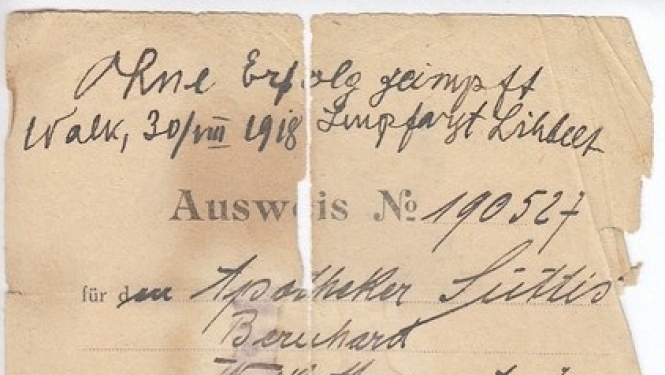 Ohne Erfolg geimpft
Walk, 30/VIII 1918 Impfarzt
Ausweis No 190527
für den Apotheker
Bernhard